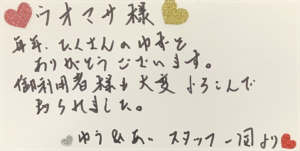 ラオマサ様
毎年、たくさんのゆずを
ありがとうございます。
御利用者様も大変よろこんで
おられました。
ゆうあい スタッフ一同より